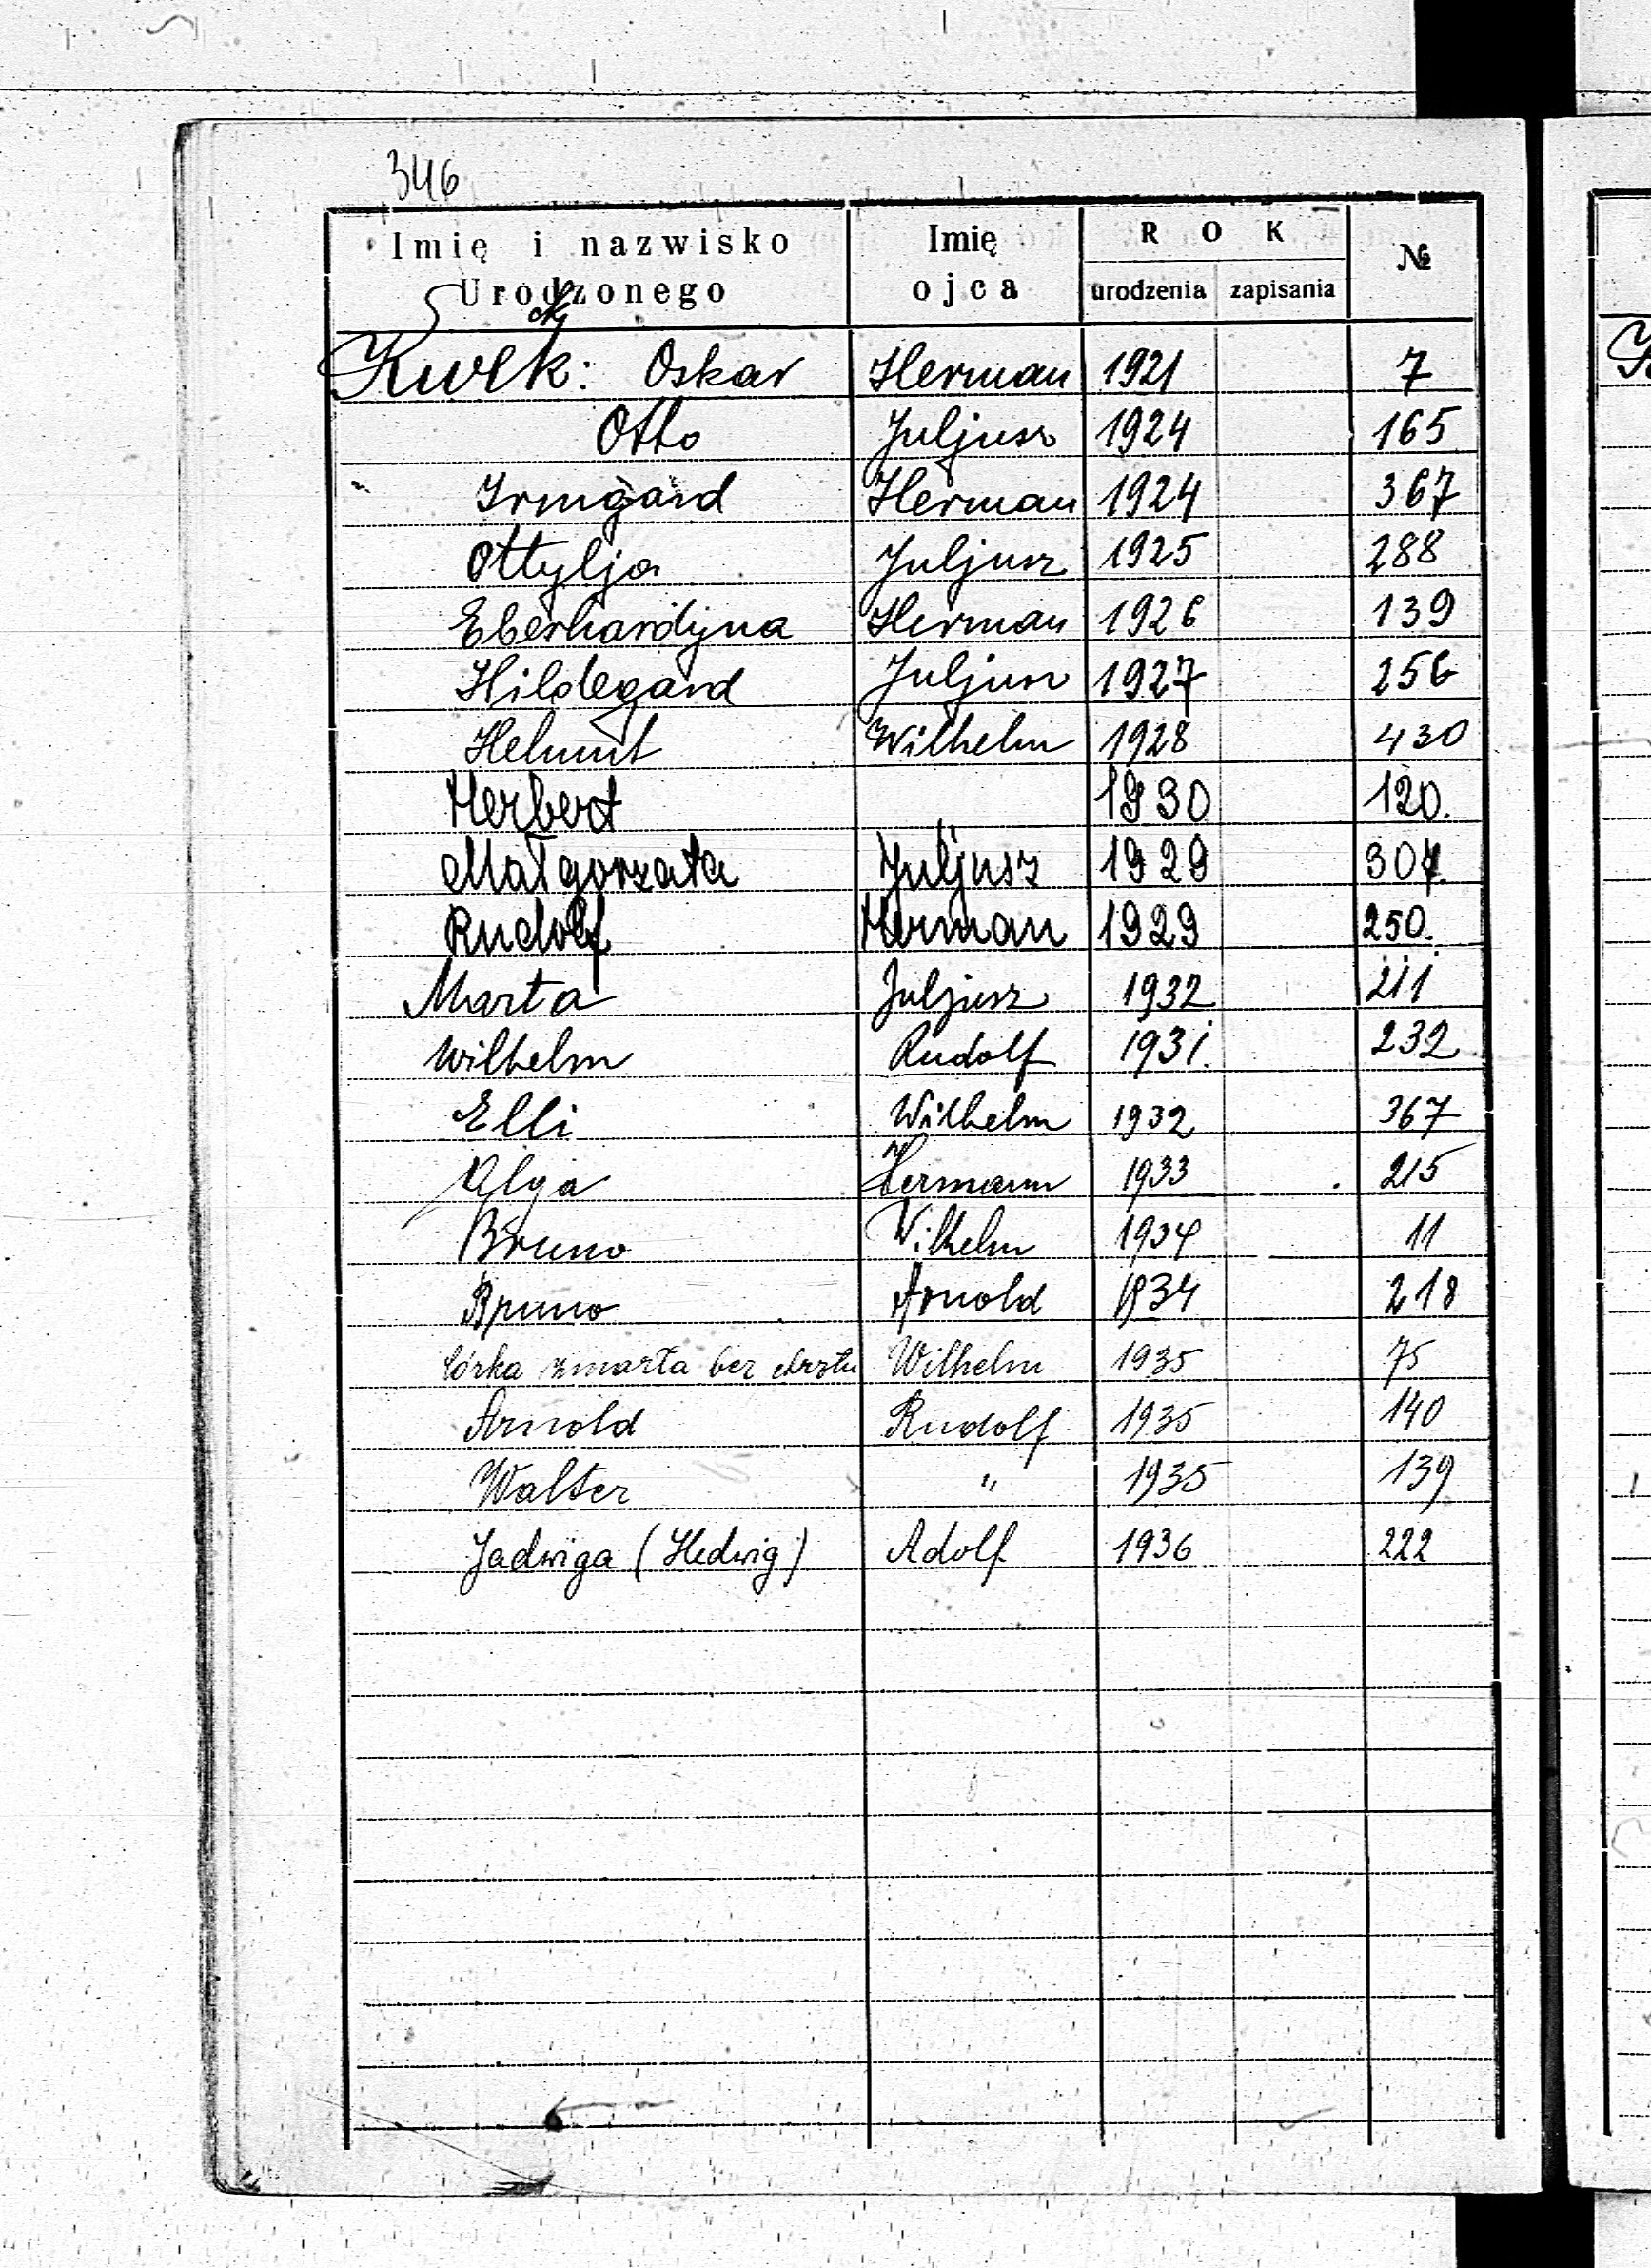 346
Imię i nazwisko Urodzonego Imię ojca ROK urodzenia zapisania №
Kwek: Oskar Herman 1921 7
Otto Juljusz 1924 165
Irmgard Herman 1924 367
Ottylja Juljusz 1925 288
Eberhardyna Herman 1926 139
Hildegard Juljusz 1927 256
Helmut Wilhelm 1928 430
Herbert 1930 120.
Małgorzata Juljusz 1929 304.
Rudolf Herman 1929 250.
Marta Juljusz 1932 211
Wilhelm Rudolf 1931. 232
Elli Wilhelm 1932 367
Olga Hermann 1933 215
Bruno Wilhelm 1934 11
Bruno Arnold 1934 218
Córka zmarła bez chrztu Wilhelm 1935 75
Arnold Rudolf 1935 140
Walter " 1935 139
Jadwiga (Hedwig) Adolf 1936 222